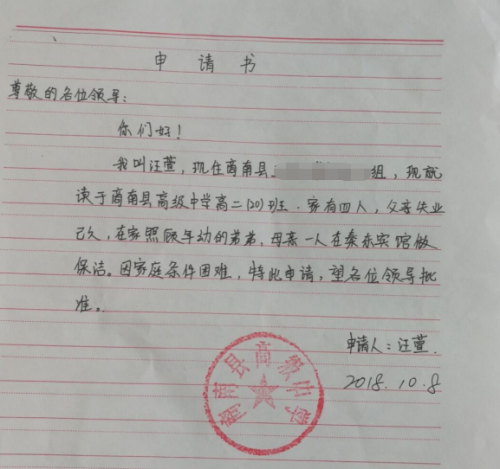 申请书
尊敬的各位领导：
你们好！
我叫汪萱，现住商南县组，现就
读于商南县高级中学高二(20)班．家有四人，父亲失业
已久，在家照顾年幼的弟弟，母亲一人在秦东宾馆做
保洁。因家庭条件困难，特此申请，望各位领导批
准。
申请人：汪萱．
2018.10.8
商南县高级中学